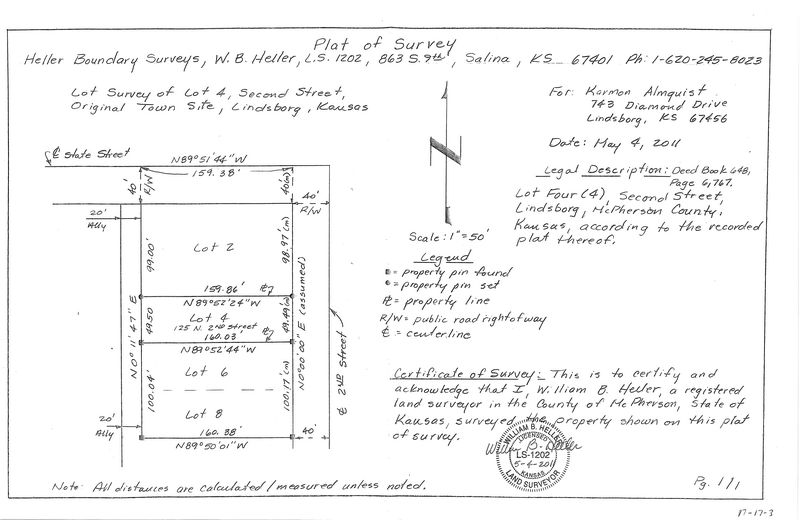 Plat of Survey
Heller Boundary Surveys, W. B. Heller, L.S. 1202, 863 S. 9th, Salina, KS 67401 Ph: 1-620-245-8023
Lot Survey of Lot 4, Second Street,
Original Town Site, Lindsborg, Kansas
For: Karmon Almquist
743 Diamond Drive
Lindsborg, KS 67456
Date: May 4, 2011
Legal Description: Deed Book 648,
Page 6,767.
Lot Four (4), Second Street,
Lindsborg, McPherson County,
Kansas, according to the recorded
plat thereof.
℄ State Street
N89°51'44"W
159.38'
40'
R/W
40'(m)
40'
R/W
20'
Ally
99.00'
Lot 2
98.97'(m)
159.86' ⅊
N89°52'24"W
49.50
Lot 4
125 N. 2nd Street
160.03' ⅊
49.49(m)
N89°52'44"W
N0°11'47"E
N0°00'00"E (assumed)
℄ 2ND Street
Lot 6
100.04'
100.17'(m)
Lot 8
20'
Ally
160.38'
40'
N89°50'01"W
N
Scale: 1"=50'
Legend
= property pin found
= property pin set
⅊ = property line
R/W = public road right of way
℄ = centerline
Certificate of Survey: This is to certify and
acknowledge that I, William B. Heller, a registered
land surveyor in the County of McPherson, State of
Kansas, surveyed the property shown on this plat
of survey.
William B. Heller
WILLIAM B. HELLER
LICENSED
LS-1202
5-4-2011
KANSAS
LAND SURVEYOR
Note: All distances are calculated/measured unless noted.
Pg. 1/1
17-17-3